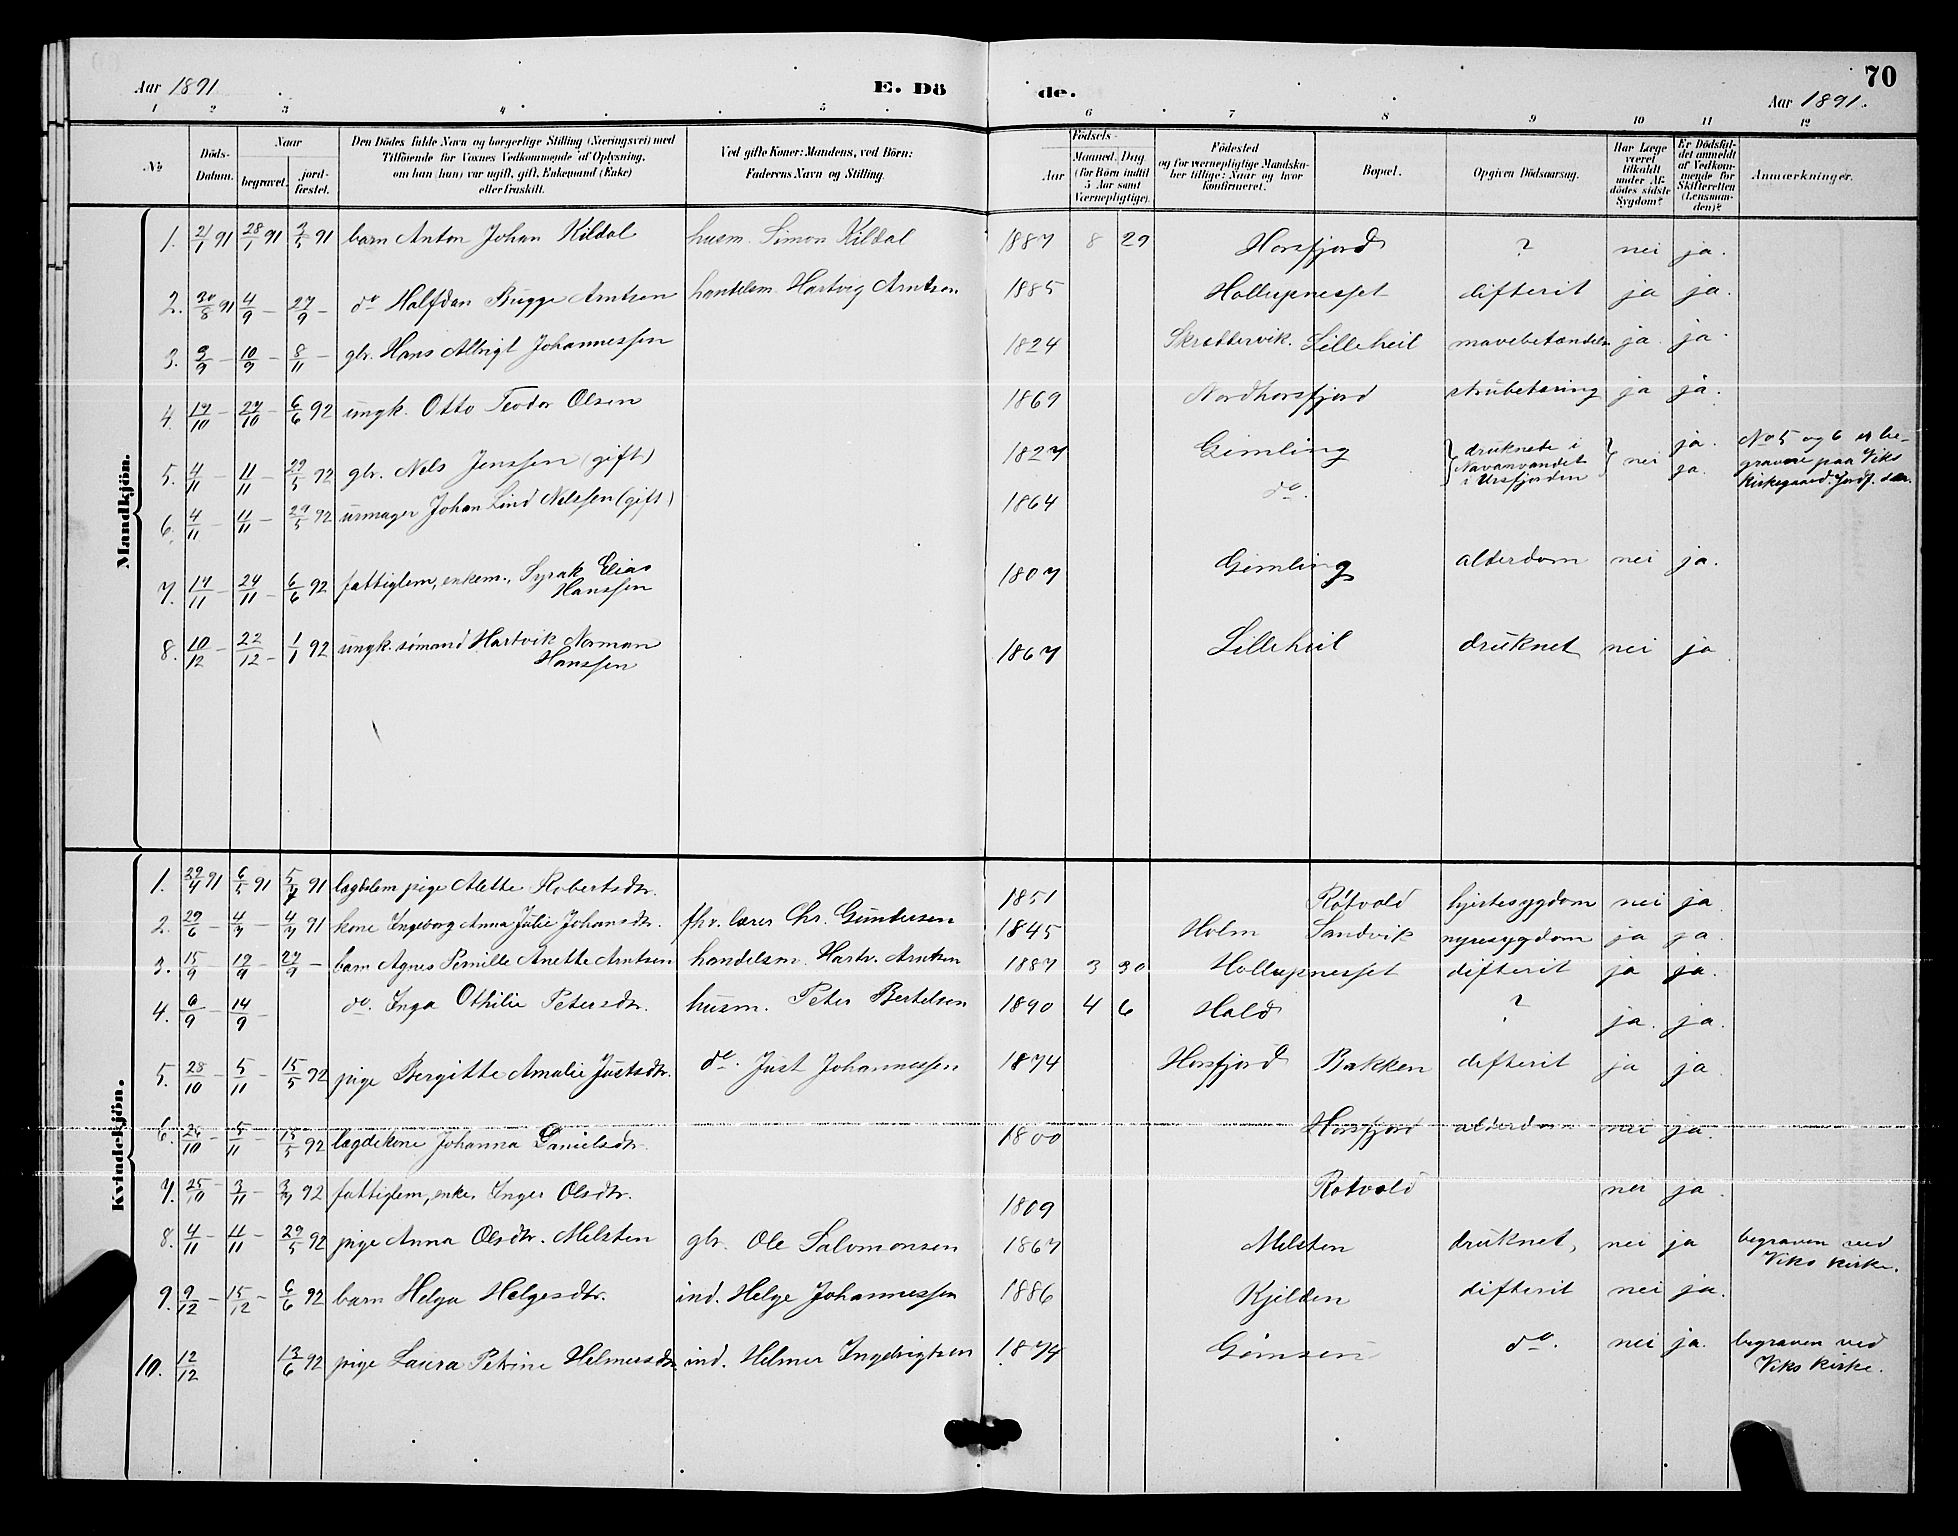 70
Aar 1891
E. Dö
de.
Aar 1891.
1 2 3 4 5 6 7 8 9 10 11 12
No
Döds-Datum.
Naar
begravet.
jord-fæstet.
Den Dödes fulde Navn og borgerlige Stilling (Næringsvei) med
Tilföiende for Voxnes Vedkommende af Oplysning,
om han (hun) var ugift, gift, Enkemand (Enke)
eller fraskilt.
Ved gifte Koner: Mandens, ved Börn:
Faderens Navn og Stilling.
Födsels-
Aar
Maaned. Dag
(for Börn indtil
5 Aar samt
Værnepligtige).
Födested
og for værnepligtige Mandska-
ber tillige: Naar og hvor
konfirmeret.
Bopæl.
Opgiven Dödsaarsag.
Har Læge
været
tilkaldt
under Af-
dödes sidste
Sygdom?
Er Dödsfal-
det anmeldt
af Vedkom-
mende for
Skifteretten
(Lensman-
den)?
Anmærkninger.
Mandkjön.
1. 21/1 91 28/1 91 3/5 91 barn Anton Johan Kildal husm. Simon Kildal 1887 8 29 Horsfjord ? nei ja.
2. 30/8 91 4/9 – 27/9 – do Halfdan Bugge Arntsen handelsm. Hartvig Arntsen 1885 Hollupnesset difterit ja ja.
3. 9/9 – 10/9 – 8/11 – gbr. Hans Albrigt Johannessen 1824 Skrattervik. Lilleheil mavebetændelse ja. ja.
4. 17/10 – 27/10 – 6/6 92 ungk. Otto Teodor Olsen 1869 Nordhorsfjord strubetæring ja ja.
5. 4/11 – 11/11 – 29/5 92 gbr. Nels Jenssen (gift) 1827 Gimling druknede i Navarvandet i Ursfjorden nei ja. No 5 og 6 er be-
gravne paa Viks
Kirkegaard. Jordf. der.
6. 4/11 – 11/11 – 29/5 92 urmager Johan Lind Nelssen (gift) 1864 do. ja.
7. 17/11 – 24/11 – 6/6 92 fattiglem, enkem., Syrak Elias
Hanssen 1807 Gimling alderdom nei ja.
8. 10/12 – 22/12 – 1/1 92 ungk. sømand Hartvik Norman
Hanssen 1867 Lilleheil druknet nei ja
Kvindekjön.
1. 29/4 91 6/5 91 5/7 91 lægdslem pige Alette Robertsdtr. 1851 Røtvold hjertesygdom nei ja.
2. 29/6 – 4/7 – 4/7 91 kone Ingeborg Anna Julie Johansdtr. fhv. lærer Chr. Gundersen 1845 Holm Sandvik nyresygdom ja ja.
3. 15/9 – 19/9 – 27/9 – barn Agnes Pernille Anette Arntsen handelsm. Hartv. Arntsen 1887 3 30 Hollupnesset difterit ja ja.
4. 6/9 – 14/9 – do. Inga Othilie Petersdtr. husm. Peter Bertelsen 1890 4 6 Hald ? ja. ja.
5. 28/10 – 5/11 – 15/5 92 pige Bergitte Amalie Justsdtr. do. Just Johannessen 1874 Horsfjord Bakken difterit ja ja
6. 26/10 – 5/11 – 15/5 92 lægdekone Johanna Danielsdtr. 1800 Horsfjord alderdom nei ja.
7. 25/10 – 3/11 – 3/7 92 fattiglem, enke, Inger Olsdtr. 1809 Røtvold nei ja.
8. 4/11 – 11/11 – 29/5 92 pige Anna Olsdtr. Melsten gbr. Ole Salomonsen 1867 Melsten druknet, nei ja begraven ved
Viks kirke.
9. 9/12 – 15/12 – 6/6 92 barn Helga Helgesdtr. ind. Helge Johannessen 1886 Kjelden difterit nei ja.
10. 12/12 13/6 92 pige Laura Petrine Helmersdtr. ind. Helmer Ingebrigtsen 1874 Gimsen do. nei ja. begraven ved
Viks kirke.